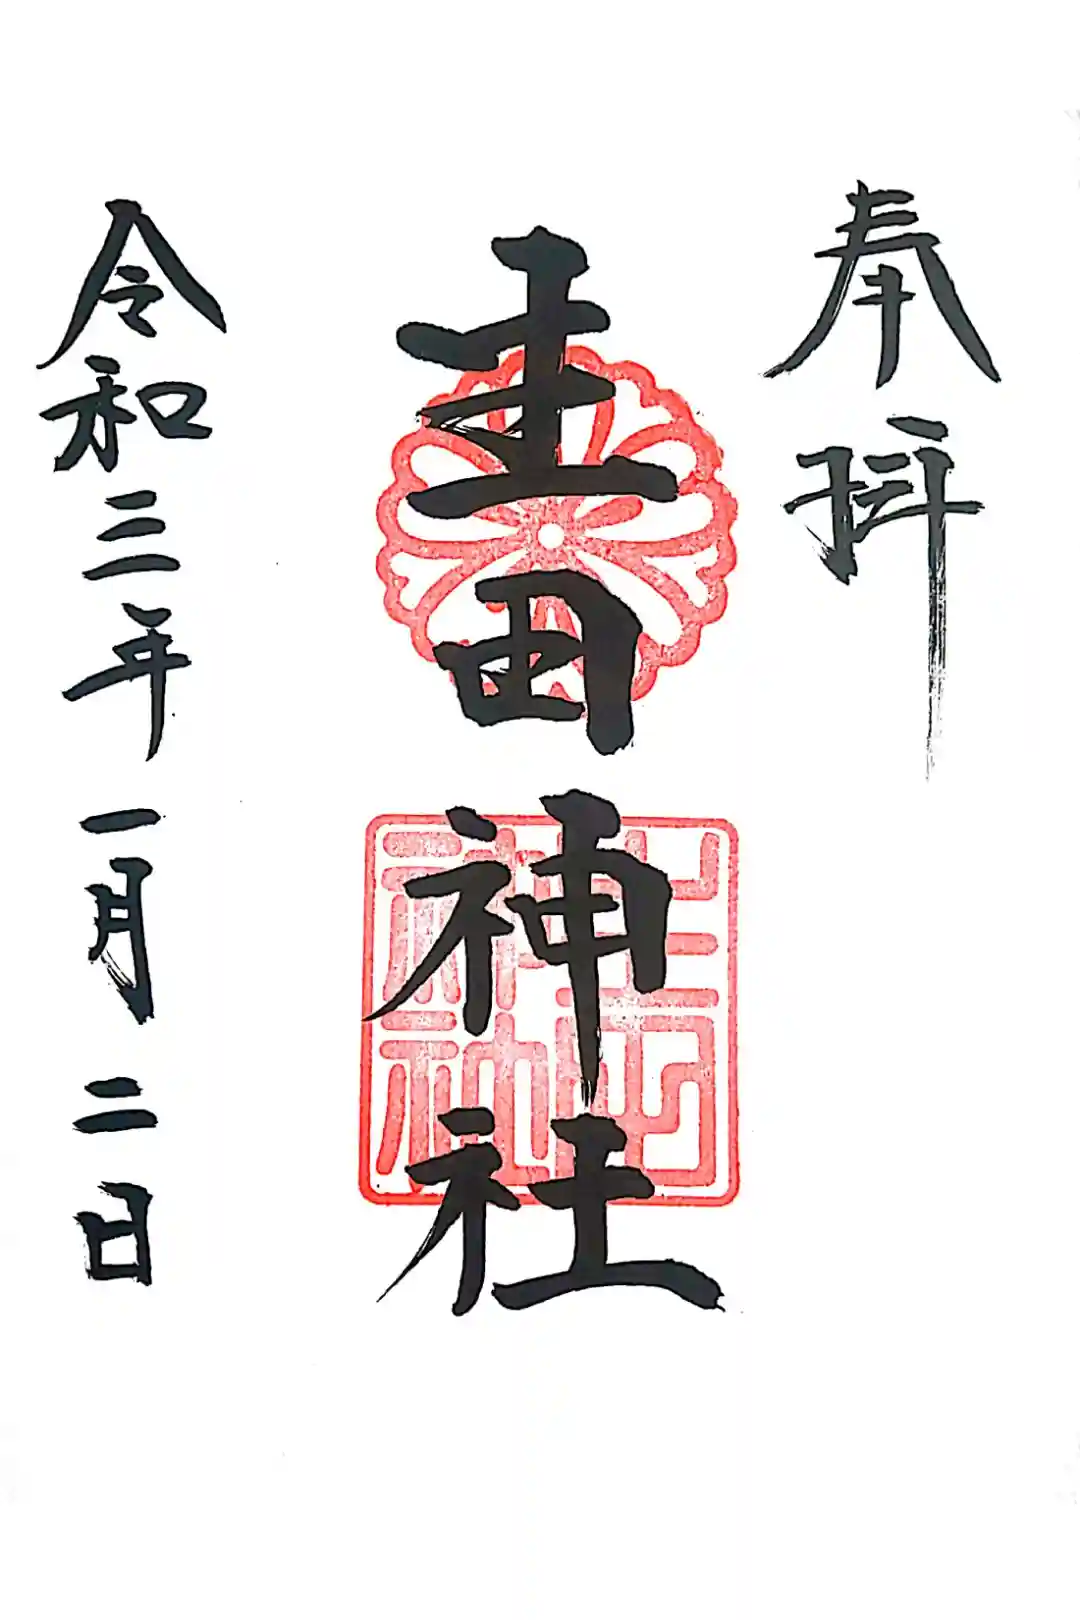 奉拝
生田神社
令和三年一月二日